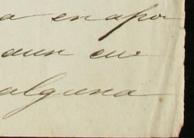 a en apo
aun en
alguna